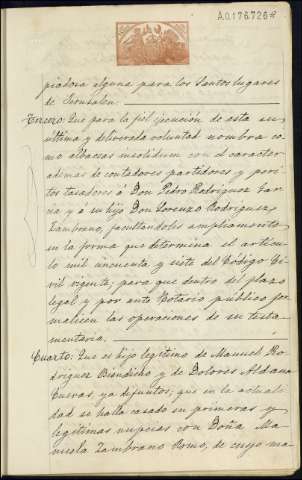 A.0.176.726*
piadosa alguna para los Santos lugares
de Jerusalen.
Tercero: Que para la fiel ejecución de esta su
última y deliverada voluntad nombra co
mo albaceas insolidum con el caracter
ademas de contadores partidores y peri
tos tasadores á Don Pedro Rodriguez
y á su hijo Don Lorenzo Rodriguez
Zambrano, facultandoles ampliamente
en la forma que determina el articu
lo mil cincuenta y siete del Código Ci
vil vigente, para que dentro del plazo
legal y por ante Notario público for
malicen las operaciones de su testa
mentaria.
Cuarto: Que es hijo legitimo de Manuel Ro
driguez Bendicho y de Dolores Aldana
Cuevas, ya difuntos; que en la actuali
dad se halla casado en primeras y
legitimas nupcias con Doña Ma
nuela Zambrano Romo, de cuyo ma